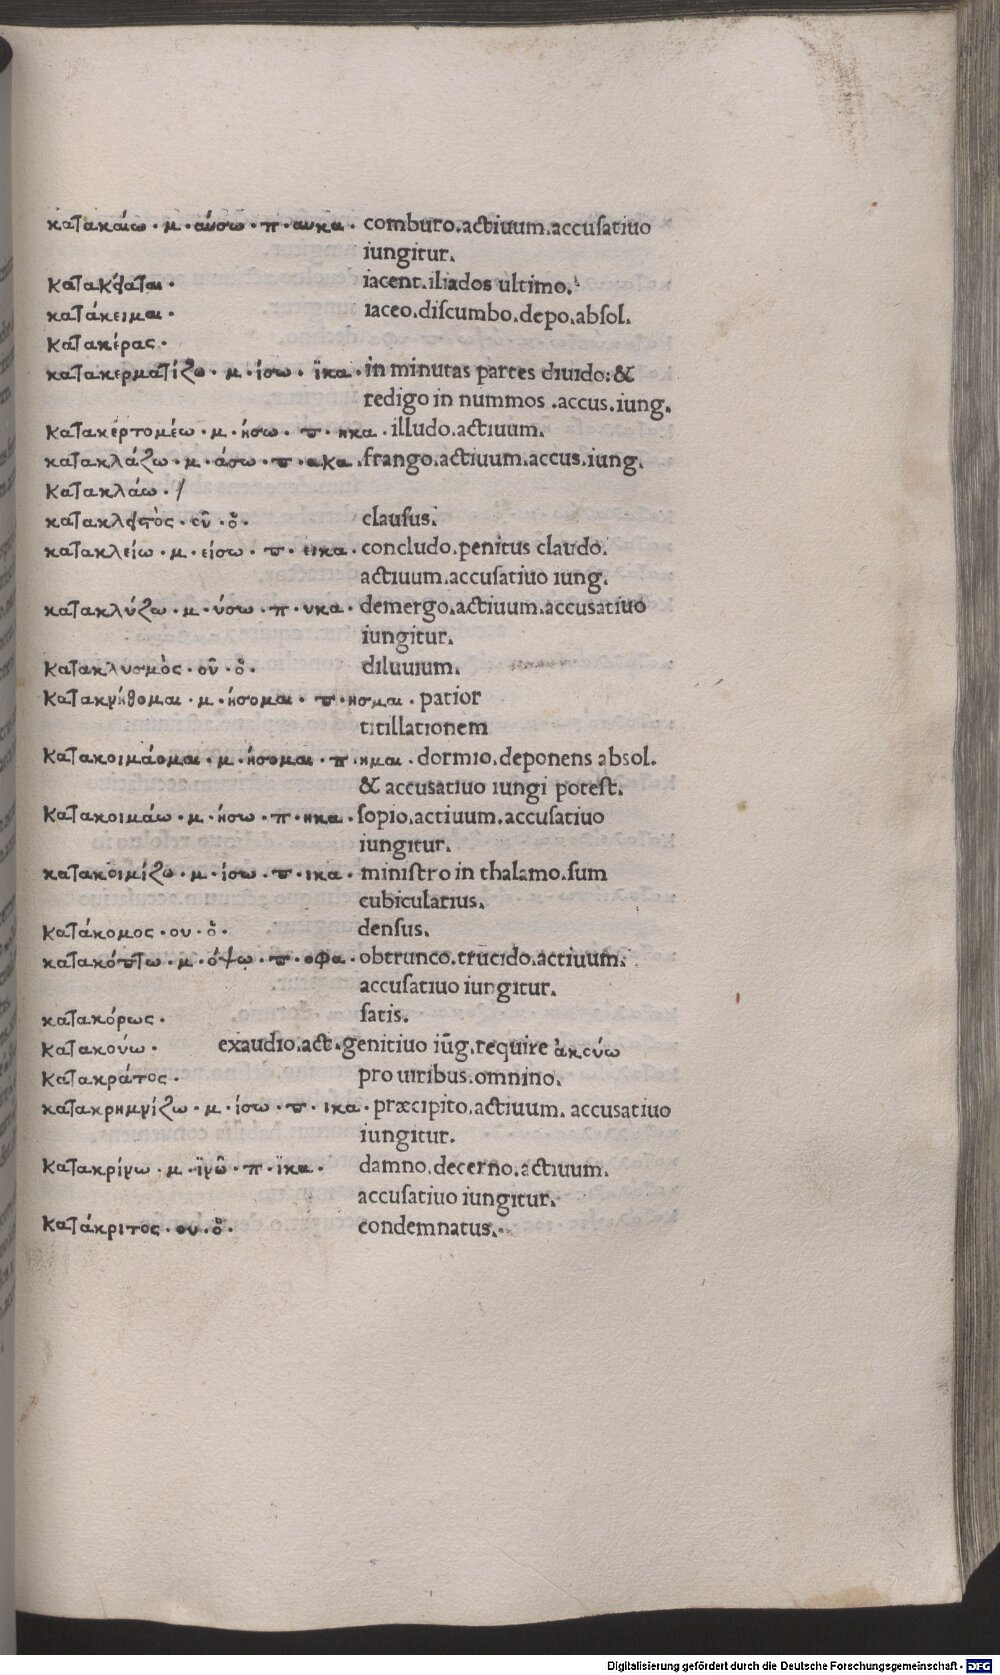 κατακαίω · μ · αύσω · π · αυκα · comburo.actiuum.accusatiuo
iungitur.
κατακείαται · iacent.iliados ultimo.
κατάκειμαι · iaceo.discumbo.depo.absol.
κατακέρας ·
κατακερματίζω · μ · ίσω · ϊκα · in minutas partes diuido:&
redigo in nummos .accus.iung.
κατακερτομέω · μ · ήσω · π · ηκα · illudo.actiuum.
κατακλάζω · μ · άσω · π · ακα .frango.actiuum.accus.iung.
κατακλάω · /
κατακλειστὸς · οῦ · ὁ · clausus.
κατακλείω · μ · είσω · π · εικα · concludo.penitus claudo.
actiuum.accusatiuo iung.
κατακλύζω · μ · ύσω · π · υκα · demergo.actiuum.accusatiuo
iungitur.
κατακλυσμὸς · οῦ · ὁ · diluuium.
κατακνήθομαι · μ · ήσομαι · π · ησμαι · patior
titillationem
κατακοιμάομαι · μ · ήσομαι · π · ημαι · dormio.deponens absol.
& accusatiuo iungi potest.
κατακοιμάω · μ · ήσω · π · ηκα · sopio.actiuum.accusatiuo
iungitur.
κατακοιμίζω · μ · ίσω · π · ικα · ministro in thalamo.sum
cubicularius.
κατάκομος · ου · ὁ · densus.
κατακόπτω · μ · όψω · π · οφα · obtrunco.trucido.actiuum.
accusatiuo iungitur.
κατακόρως · satis.
κατακούω · exaudio.act.genitiuo iūg.require ἀκούω
κατακράτος · pro uiribus.omnino.
κατακρημνίζω · μ · ίσω · π · ικα · præcipito.actiuum. accusatiuo
iungitur.
κατακρίνω · μ · ϊνῶ · π · ϊκα · damno.decerno.actiuum.
accusatiuo iungitur.
κατάκριτος · ου · ὁ · condemnatus.
Digitalisierung gefördert durch die Deutsche Forschungsgemeinschaft - DFG